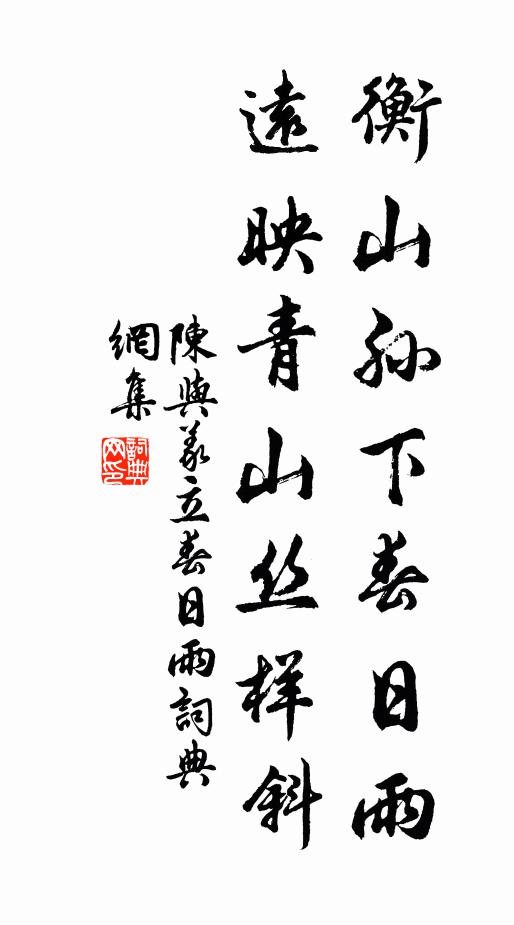 衡山孙下春日雨
遠映青山丝样斜
陳與義立春日雨詞典
網集
詞典
网印